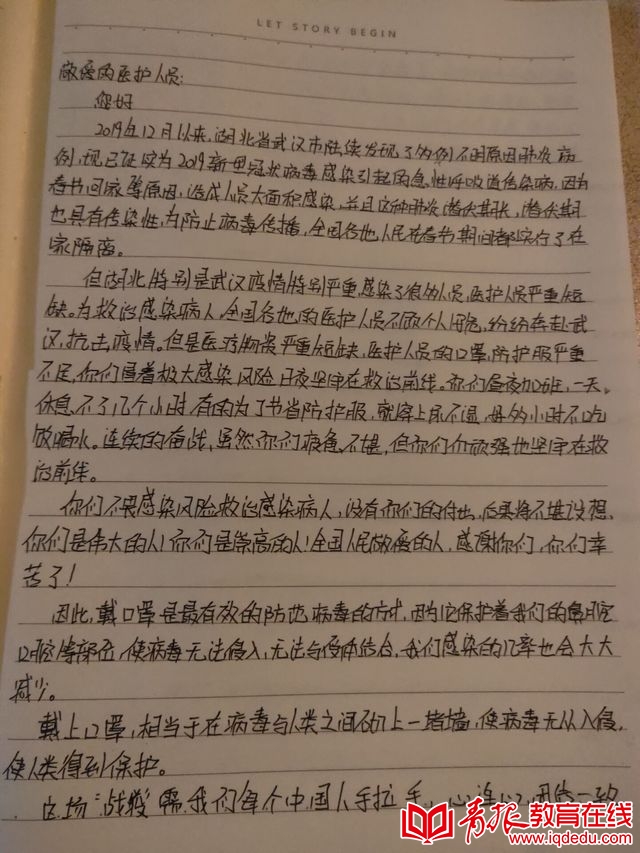 LET STORY BEGIN
敬爱的医护人员:
您好
2019年12月以来,湖北省武汉市陆续发现了多例不明原因肺炎病
例,现已证实为2019新型冠状病毒感染引起的急性呼吸道传染病,因为
春节回家等原因,造成人员大面积感染,并且这种肺炎潜伏期长,潜伏期
也具有传染性,为防止病毒传播,全国各地人民在春节期间都实行了在
家隔离。
但湖北特别是武汉疫情特别严重,感染了很多人员,医护人员严重短
缺。为救治感染病人,全国各地的医护人员不顾个人安危,纷纷奔赴武
汉,抗击疫情。但是医疗物资严重短缺,医护人员的口罩,防护服严重
不足,你们冒着极大感染风险日夜坚守在救治前线。你们昼夜加班,一天
休息不了几个小时,有的为了节省防护服,就穿上尿不湿,好多小时不吃
饭喝水。连续的奋战,虽然你们疲惫不堪,但你们仍顽强地坚守在救
治前线。
你们不畏感染风险救治感染病人,没有你们的付出,后果将不堪设想,
你们是伟大的人!你们是崇高的人!全国人民敬爱的人,感谢你们,你们辛
苦了!
因此,戴口罩是最有效的防范病毒的方式,因为它保护着我们的鼻腔
口腔等部位,使病毒无法侵入,无法与受体结合,我们感染的几率也会大大
减少。
戴上口罩,相当于在病毒与人类之间砌上一堵墙,使病毒无从入侵,
使人类得到保护。
这场"战役"需我们每个中国人手拉手,心连心,团结一致
青报教育在线
www.iqdedu.com